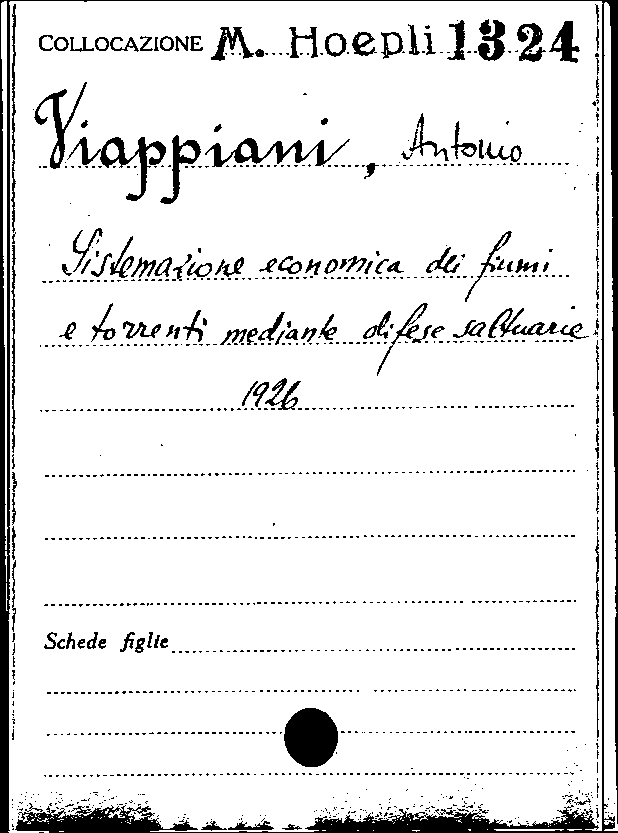 COLLOCAZIONE M. Hoepli 1324
Viappiani, Antonio
Sistemazione economica dei fiumi
e torrenti mediante difese saltuarie
1926
Schede figlie